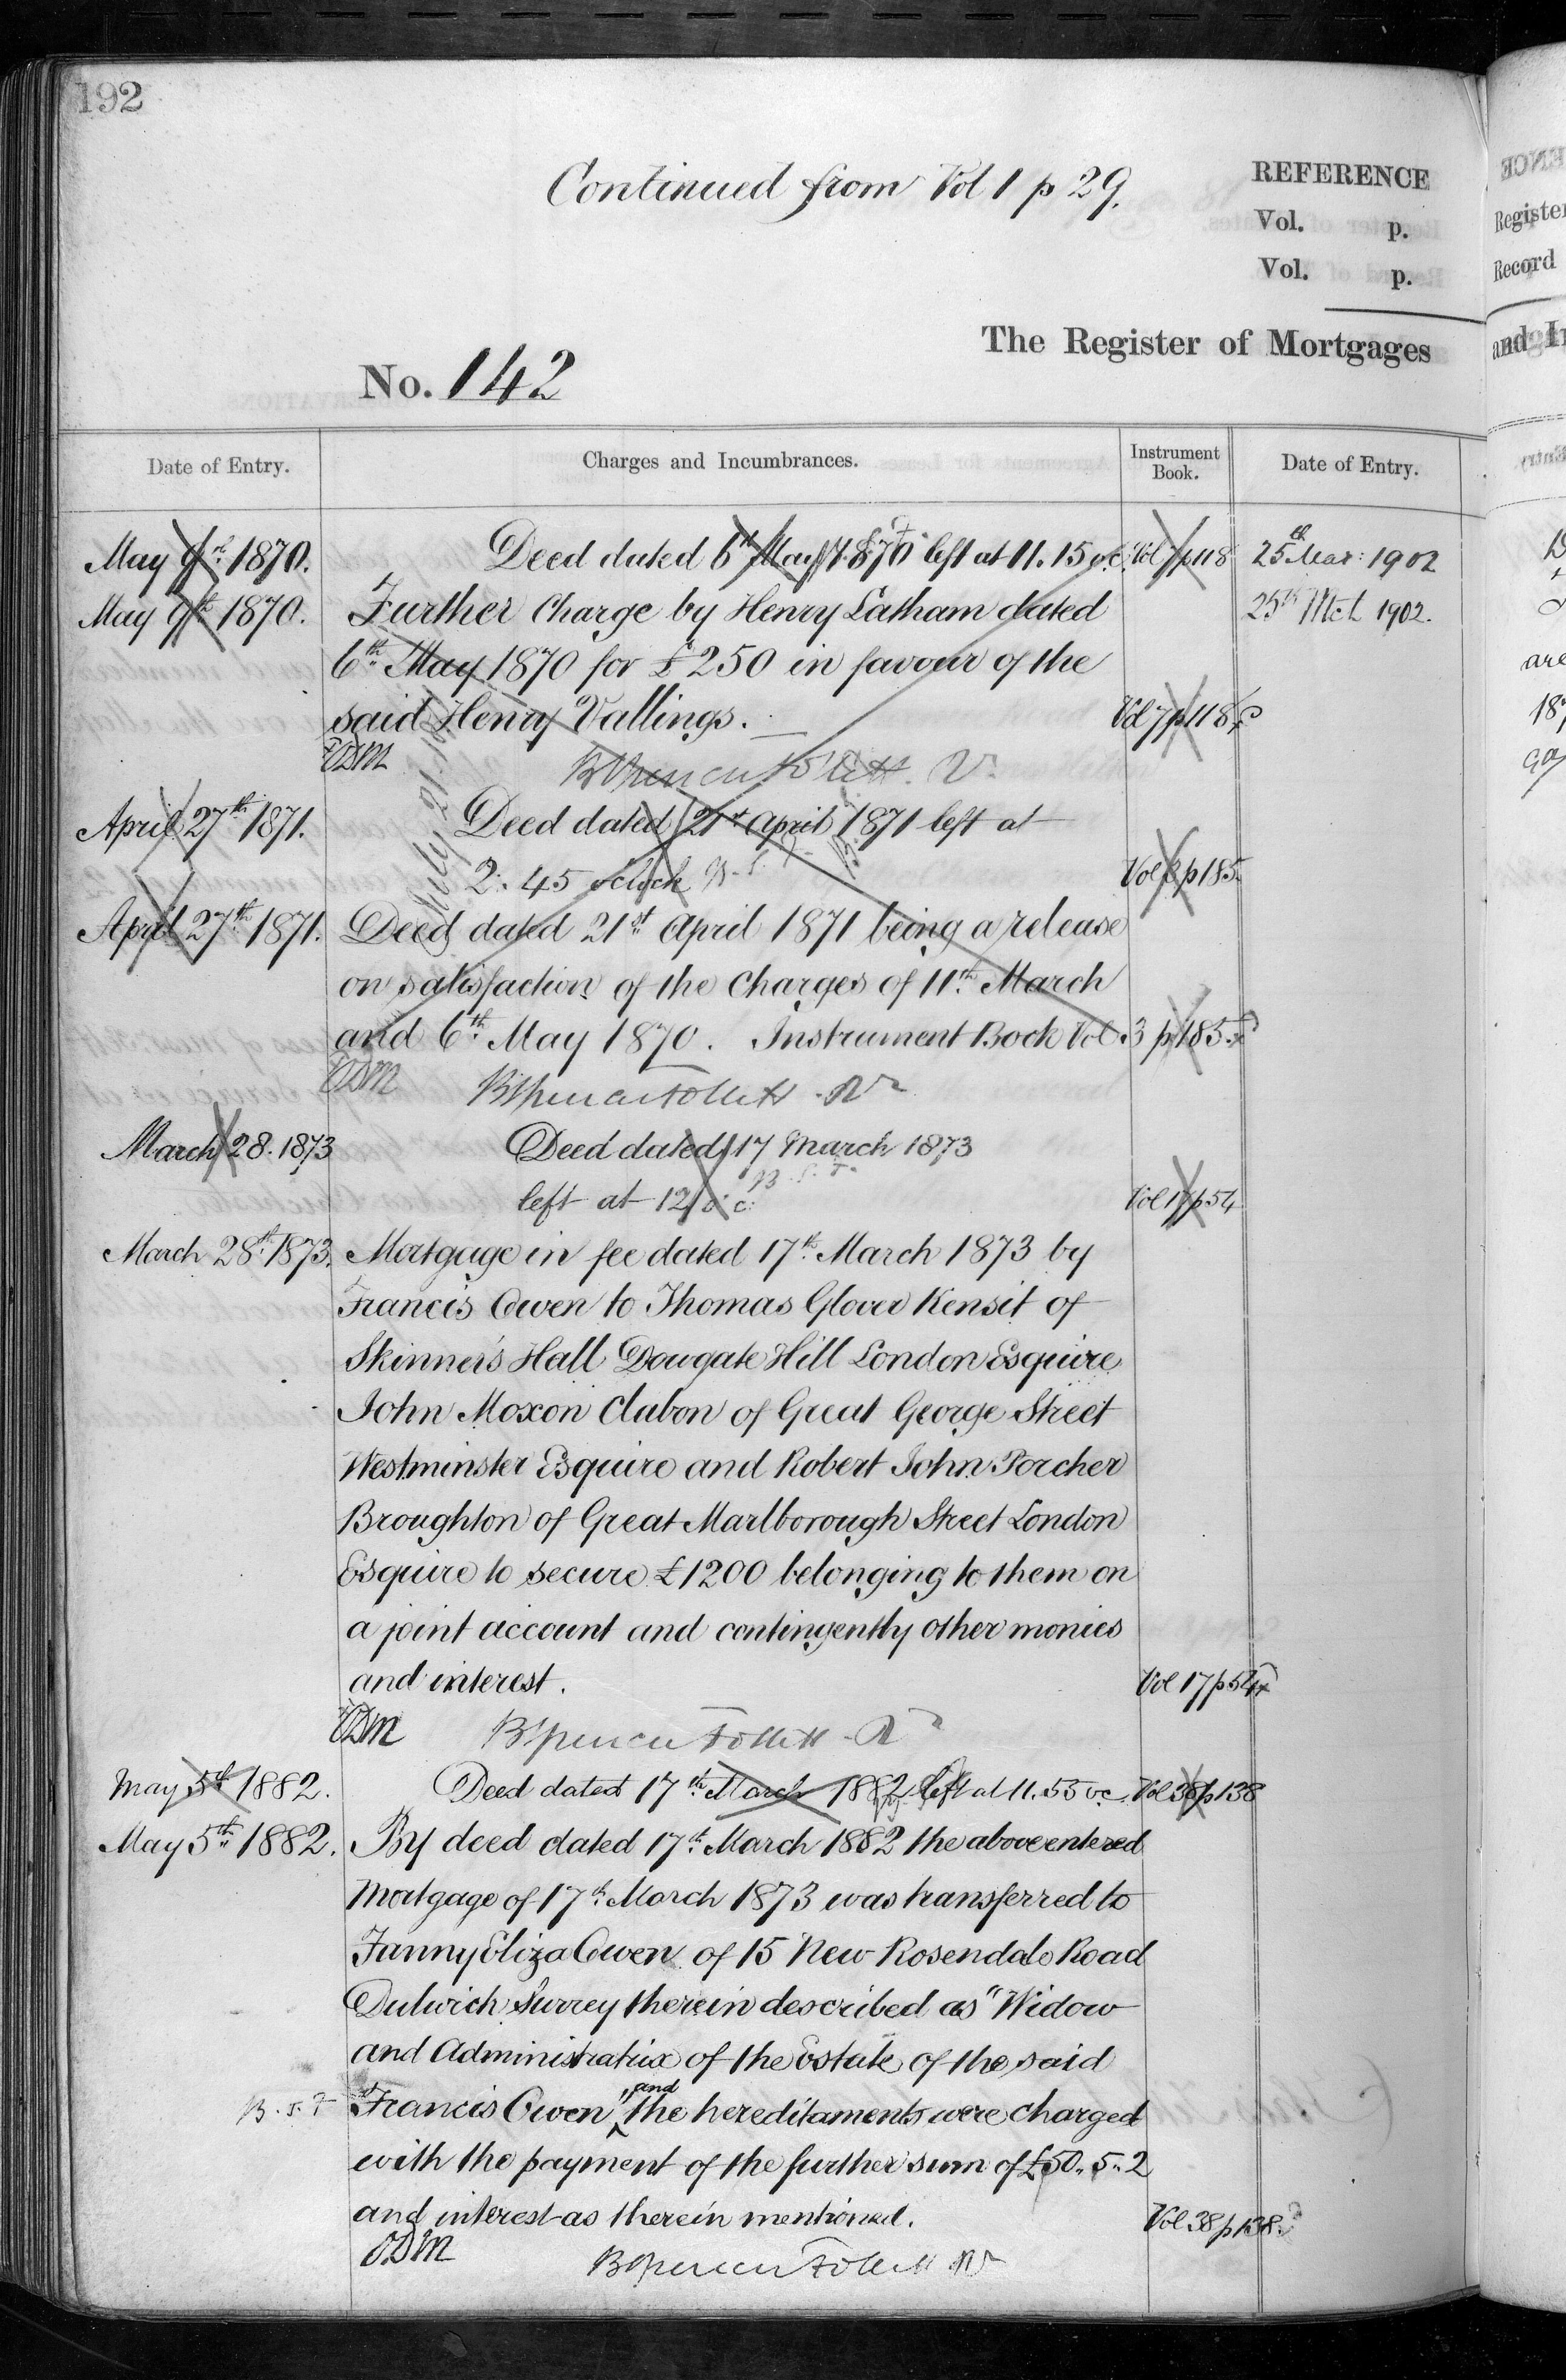 192
Continued from Vol 1 p 29.
REFERENCE
Vol. p.
Vol. p.
The Register of Mortgages
No. 142
Date of Entry.
Charges and Incumbrances.
Instrument Book.
Date of Entry.
May 9th 1870. Deed dated 6th May 1870 left at 11.15 o.c. Vol 7 p 118 25th Mar: 1902
May 9th 1870. Further Charge by Henry Latham dated 25th Mch 1902.
6th May 1870 for £250 in favour of the
said Henry Vallings. Vol 7 p 118
ODM BSpencer Follett R
April 27th 1871. Deed dated 21st April 1871 left at
2.45 oclock B.S.F. Vol p 185
April 27th 1871. Deed dated 21st April 1871 being a release
on satisfaction of the charges of 11th March
and 6th May 1870. Instrument Book Vol 3 p 185
ODM BSpencer Follett R
March 28. 1873 Deed dated 17 March 1873
left at 12 o'c: B.S.F. Vol 17 p 54
March 28th 1873. Mortgage in fee dated 17th March 1873 by
Francis Owen to Thomas Glover Kensit of
Skinner's Hall Dowgate Hill London Esquire
John Moxon Clabon of Great George Street
Westminster Esquire and Robert John Porcher
Broughton of Great Marlborough Street London
Esquire to secure £1200 belonging to them on
a joint account and contingently other monies
and interest. Vol 17 p 54
ODM BSpencer Follett R
May 5th 1882. Deed dated 17th March 1882 left at 11.55 o.c. Vol 38 p 138
May 5th 1882. By deed dated 17th March 1882 the above entered
Mortgage of 17th March 1873 was transferred to
Fanny Eliza Owen of 15 New Rosendale Road
Dulwich Surrey therein described as "Widow
and Administratrix of the Estate of the said
B.S.F Francis Owen" and the hereditaments were charged
with the payment of the further sum of £50.. 5.. 2
and interest as therein mentioned. Vol 38 p 138
ODM BSpencer Follett R
ENCE
Register
Record
and In